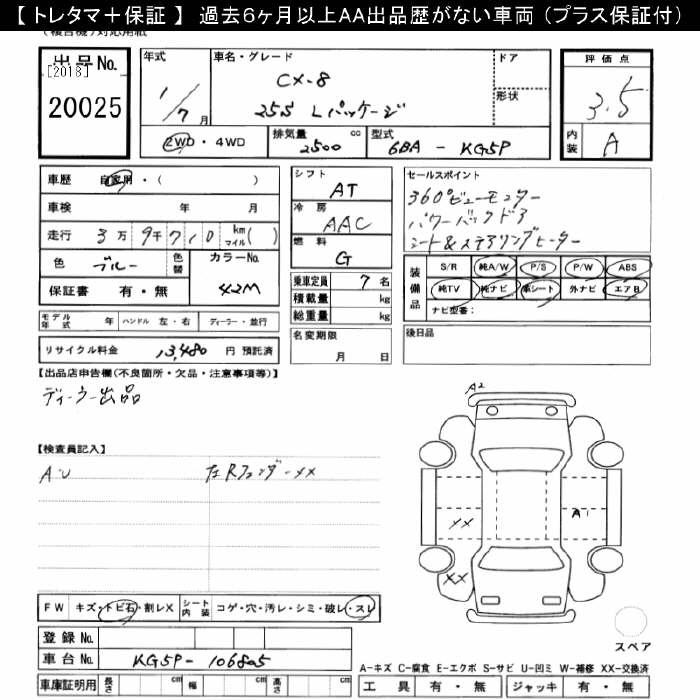 【 トレタマ＋保証 】 過去6ヶ月以上AA出品歴がない車両（プラス保証付）
出品No. 年式 車名・グレード ドア 評価点
[2018] CX-8
20025 1/7月 25S Lパッケージ 形状 3.5
2WD・4WD 排気量 2500 cc 型式 6BA - KG5P 内装 A
車歴 自家用・( )
車検 年 月
走行 3万9千710 km マイル( )
色 ブルー 色替 カラーNo.
保証書 有・無 42M
モデル年式 年 ハンドル 左・右 ディーラー・並行
リサイクル料金 13,480 円 預託済
シフト AT
冷房 AAC
燃料 G
乗車定員 7 名
積載量 kg
総重量 kg
名変期限
月 日
セールスポイント
360°ビューモニター
パワーバックドア
シート&ステアリングヒーター
装備品 S/R 純A/W P/S P/W ABS
純TV 純ナビ 革シート 外ナビ エアB
ナビ型番：
後日品
【出品店申告欄(不良箇所・欠品・注意事項等)】
ディーラー出品
【検査員記入】
A・U 左Rフェンダー××
A2
A1
××
××
FW キズ・トビ石・割レX シート内装 コゲ・穴・汚レ・シミ・破レ・スレ
登録No.
車台No. KG5P- 106805
車庫証明用 長さ cm 幅 cm 高さ cm
スペア
A-キズ C-腐食 E-エクボ S-サビ U-凹ミ W-補修 XX-交換済
工具 有・無 ジャッキ 有・無